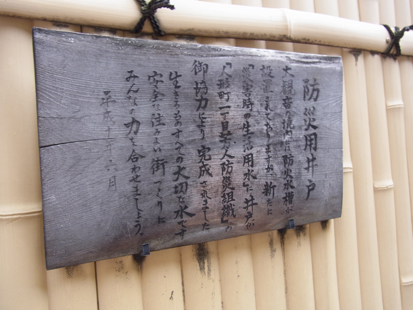 防災用井戸
大規模な街には防火水槽が
設置されておりますが、新たに
災害時の生活用水に、井戸が
一丁目 防災組織の
御協力により完成されました
生きるものすべての大切な水です
安全で住みよい街づくりに
みんなの力を合わせましょう。
平成十年六月